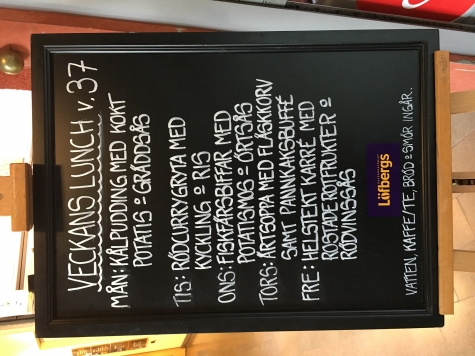 VECKANS LUNCH v.37
MÅN: KÅLPUDDING MED KOKT
POTATIS & GRÄDDSÅS
TIS: RÖDCURRYGRYTA MED
KYCKLING & RIS
ONS: FISKFÄRSBIFFAR MED
POTATISMOS & ÖRTSÅS
TORS: ÄRTSOPPA MED FLÄSKKORV
SAMT PANNKAKSBUFFÉ
FRE: HELSTEKT KARRÉ MED
ROSTADE ROTFRUKTER &
RÖDVINSSÅS
Löfbergs
VATTEN, KAFFE/TE, BRÖD & SMÖR INGÅR.